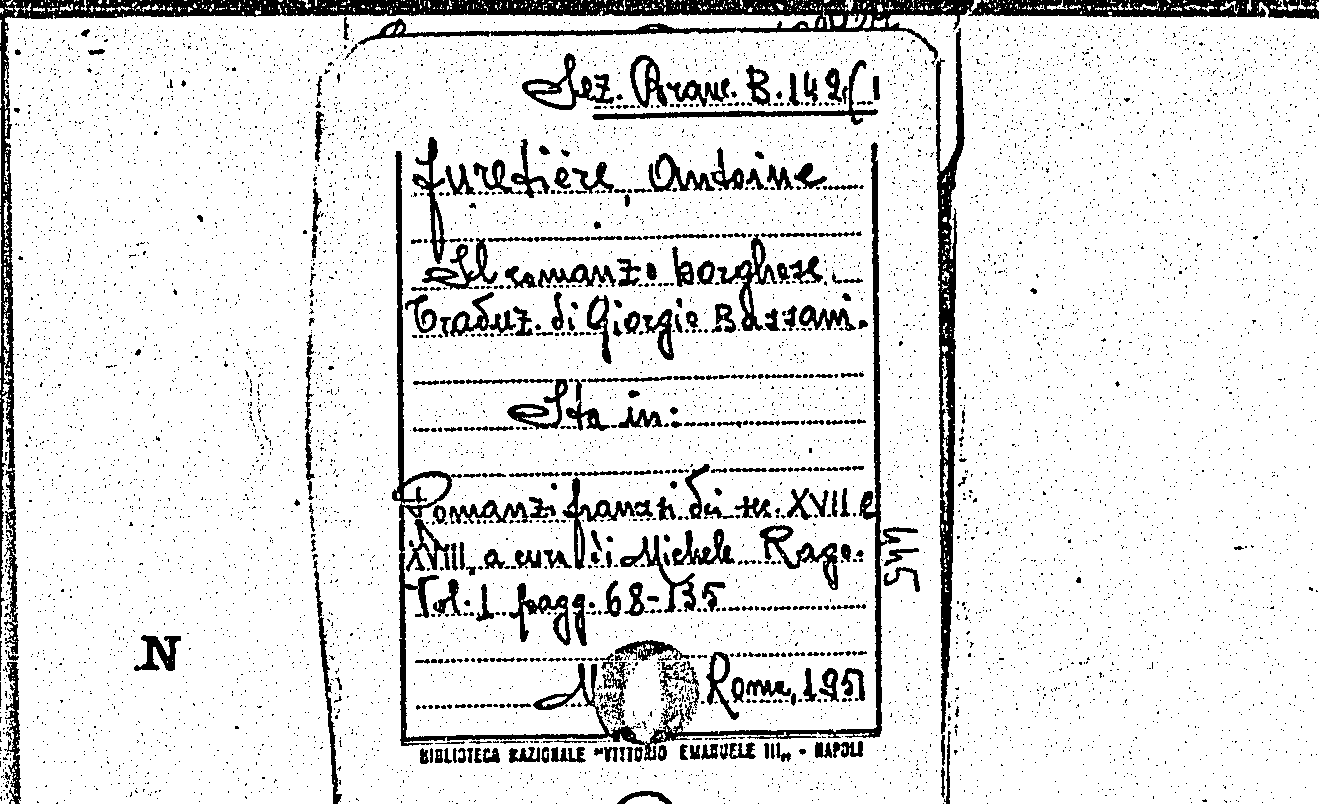 Sez. Aranc. B. 142(1
Furetière, Antoine
Il romanzo borghese.
Traduz. di Giorgio Bassani.
Sta in:
Romanzi francesi dei sec. XVII e
XVIII, a cura di Michele Rago.
Vol. 1 pagg. 68-135
Roma, 1951
BIBLIOTECA NAZIONALE "VITTORIO EMANUELE III" - NAPOLI
N